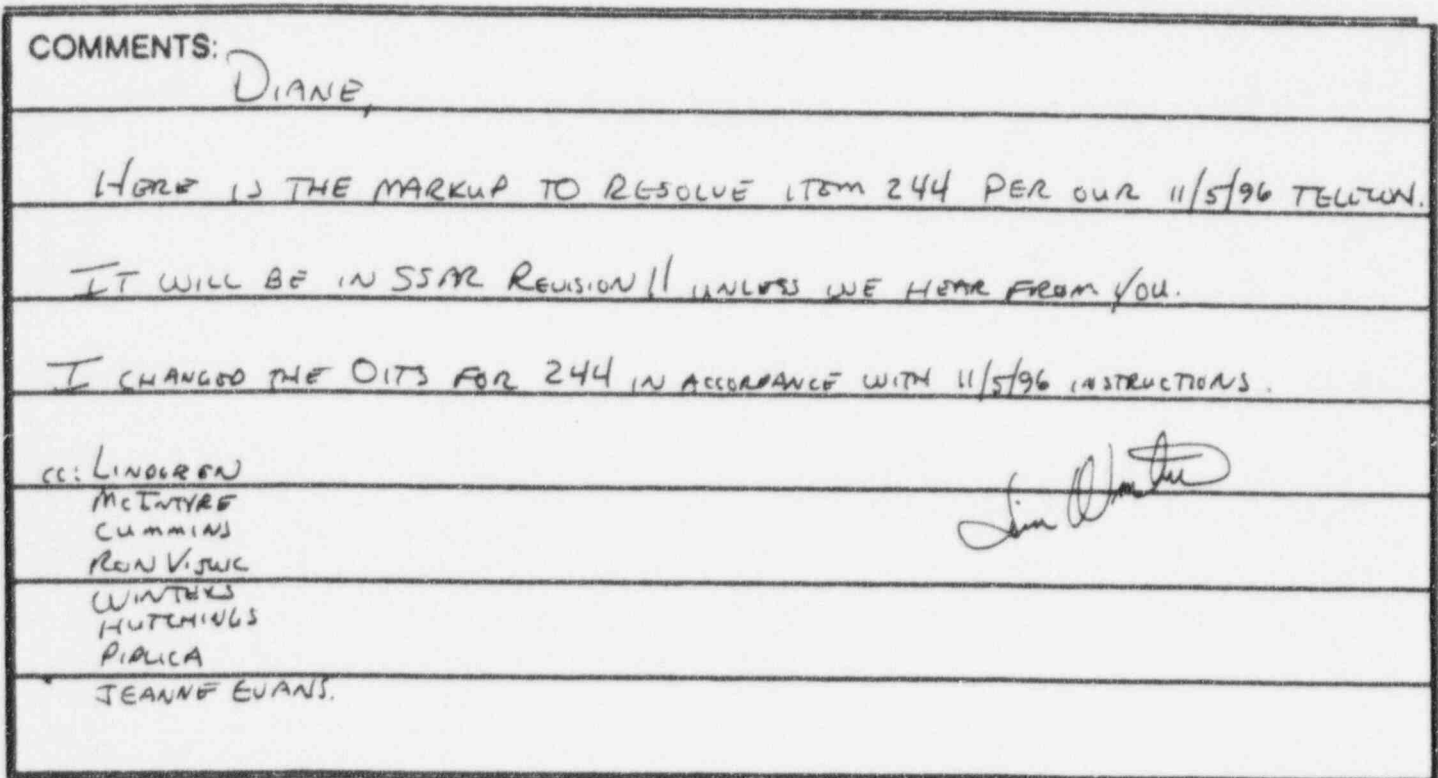 COMMENTS:
DIANE,
HERE IS THE MARKUP TO RESOLVE ITEM 244 PER OUR 11/5/96 TELECON.
IT WILL BE IN SSAR REVISION 11 UNLESS WE HEAR FROM YOU.
I CHANGED THE OITS FOR 244 IN ACCORDANCE WITH 11/5/96 INSTRUCTIONS.
cc: LINDGREN
MCINTYRE
CUMMINS
RON VIJUK
WINTERS
HUTCHINGS
PIPLICA
JEANNE EVANS.
Jim Winters